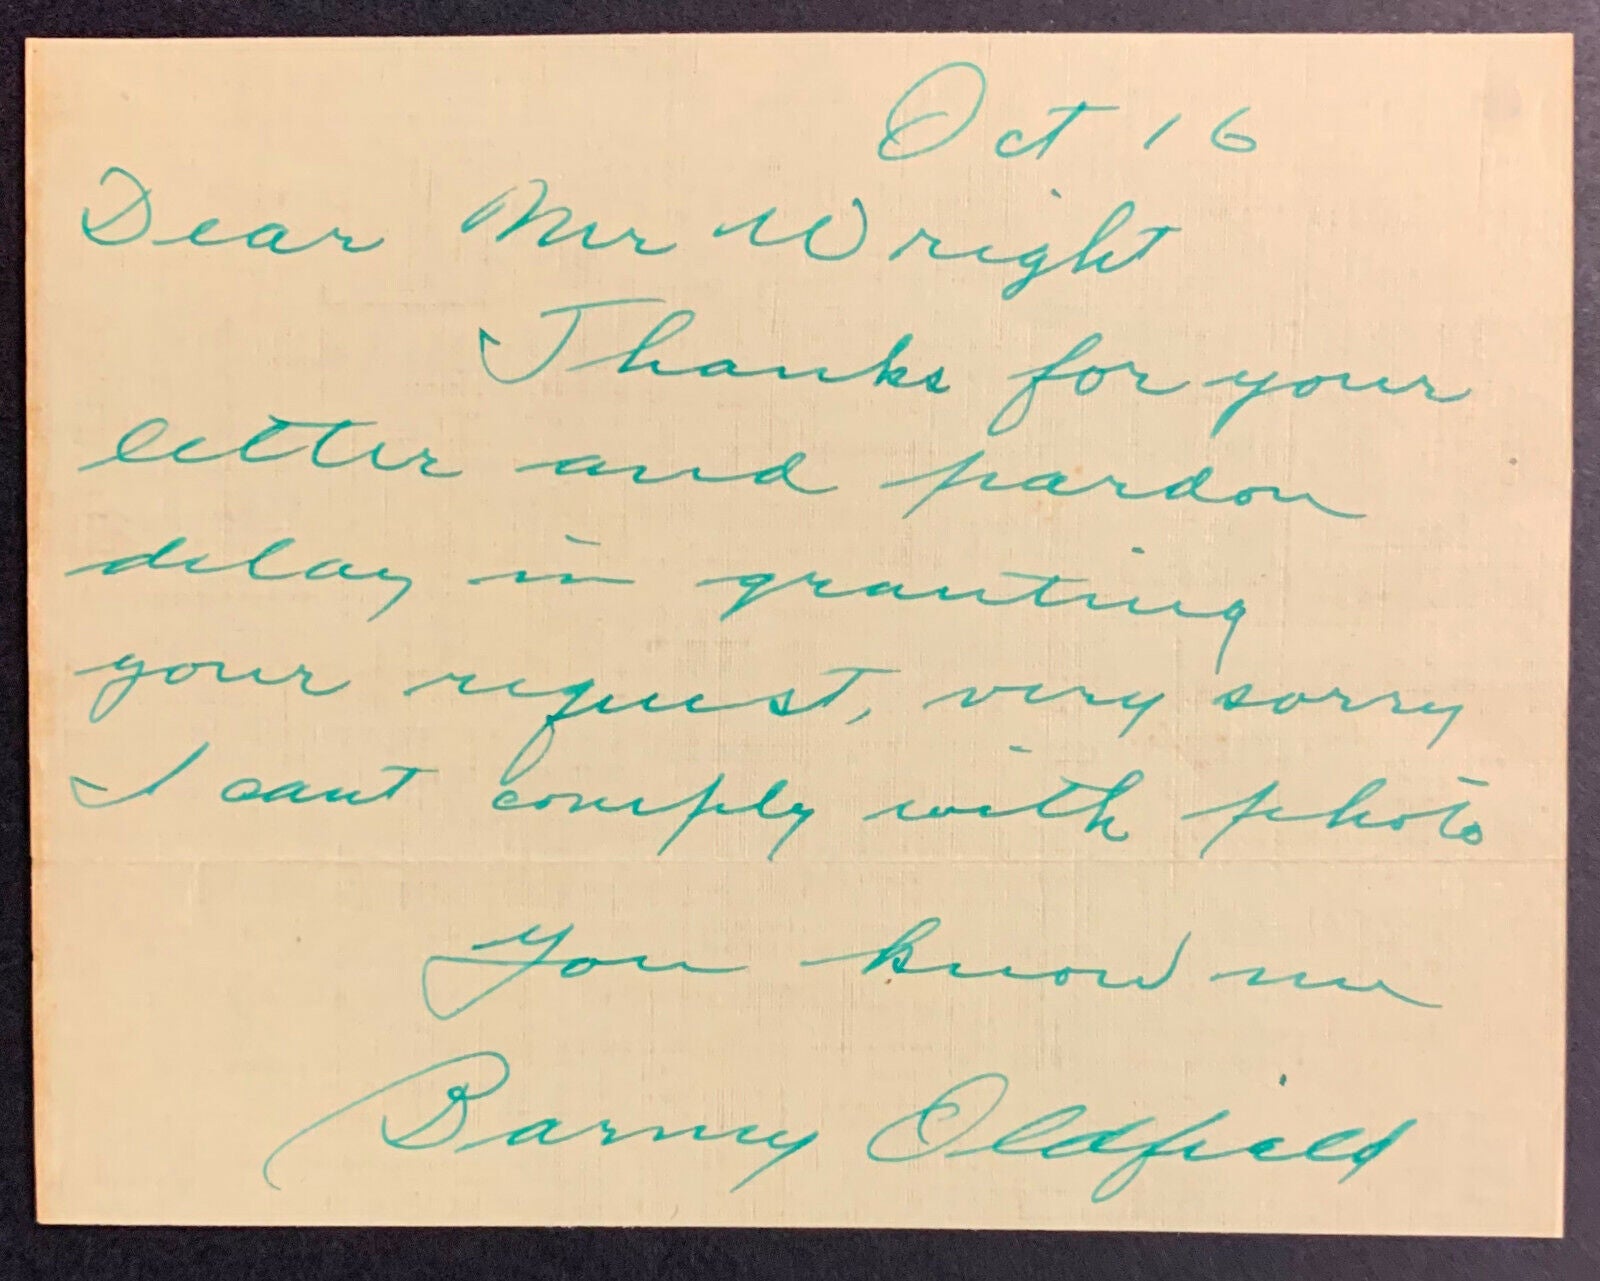 Oct 16
Dear Mr Wright
Thanks for your
letter and pardon
delay in granting
your request, very sorry
I cant comply with photo
You know me
Barney Oldfield